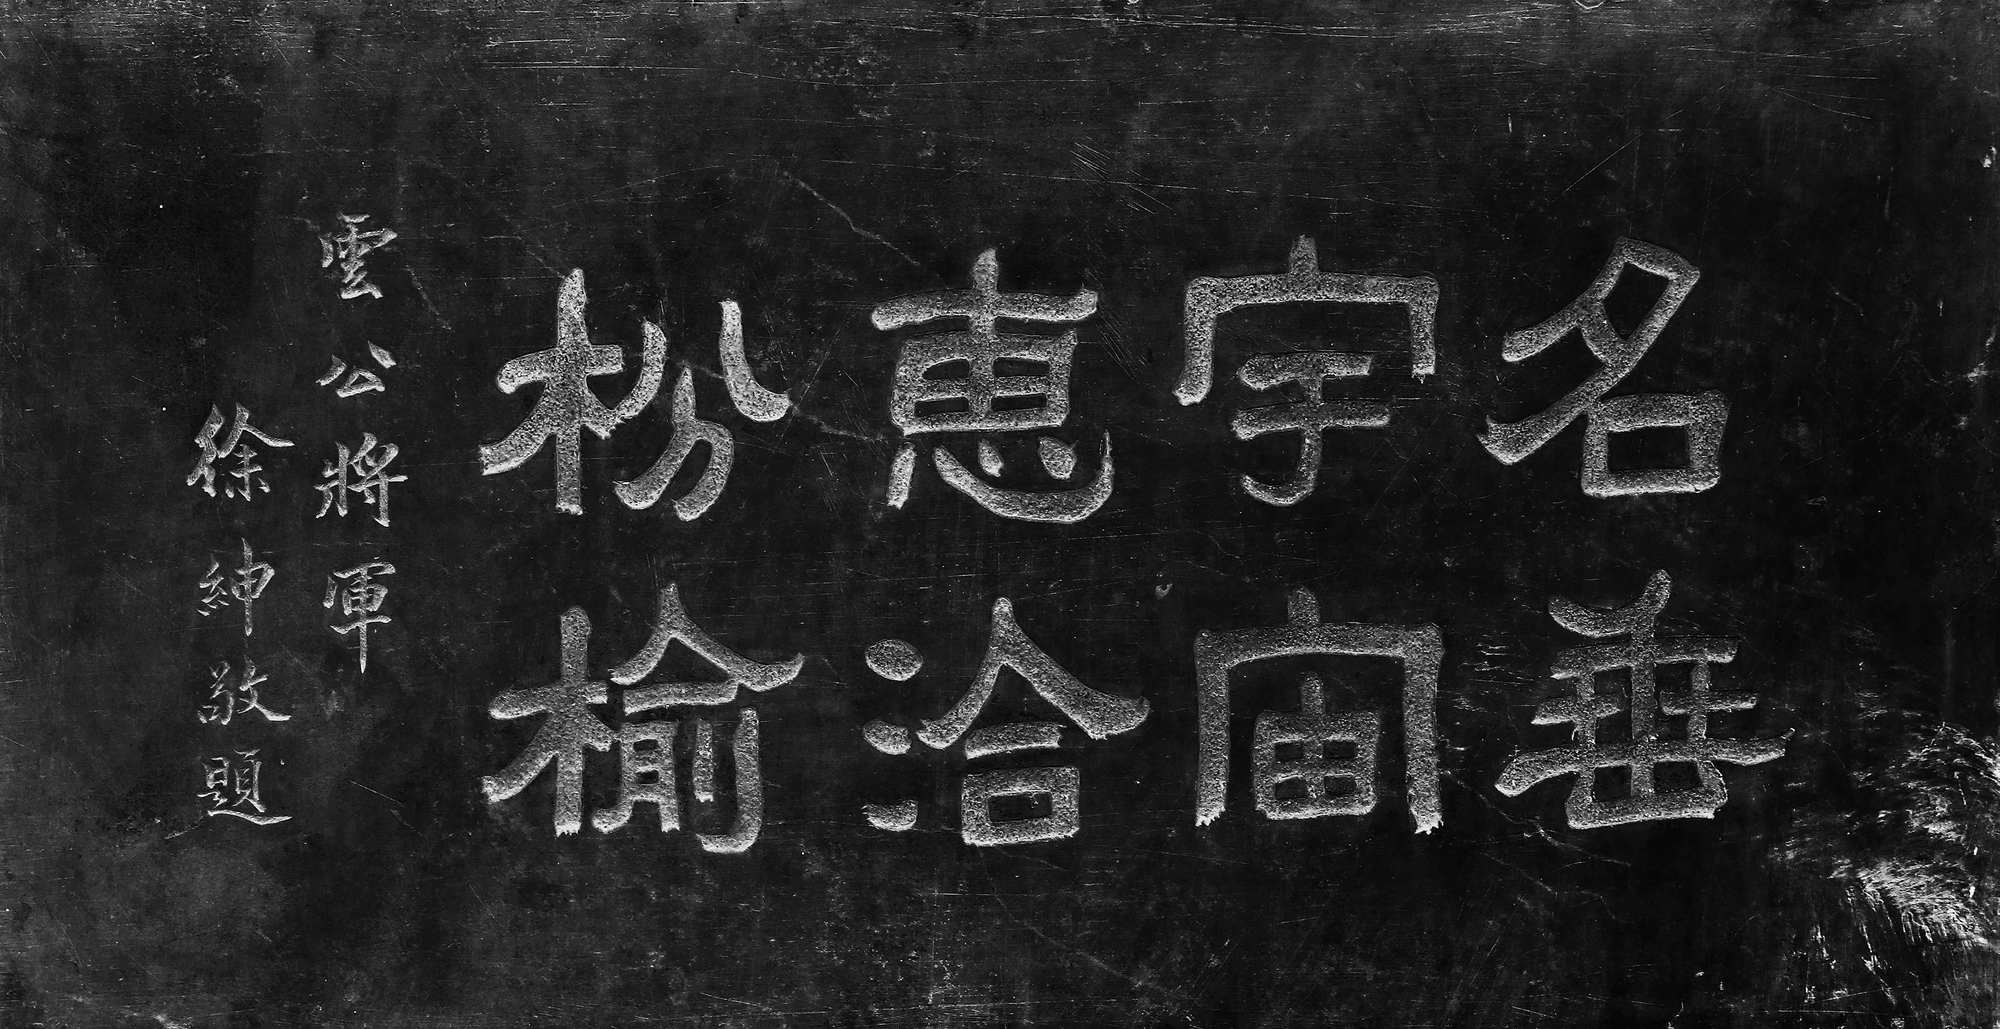 名垂
宇宙
惠洽
枌榆
雲公將軍
徐紳敬題